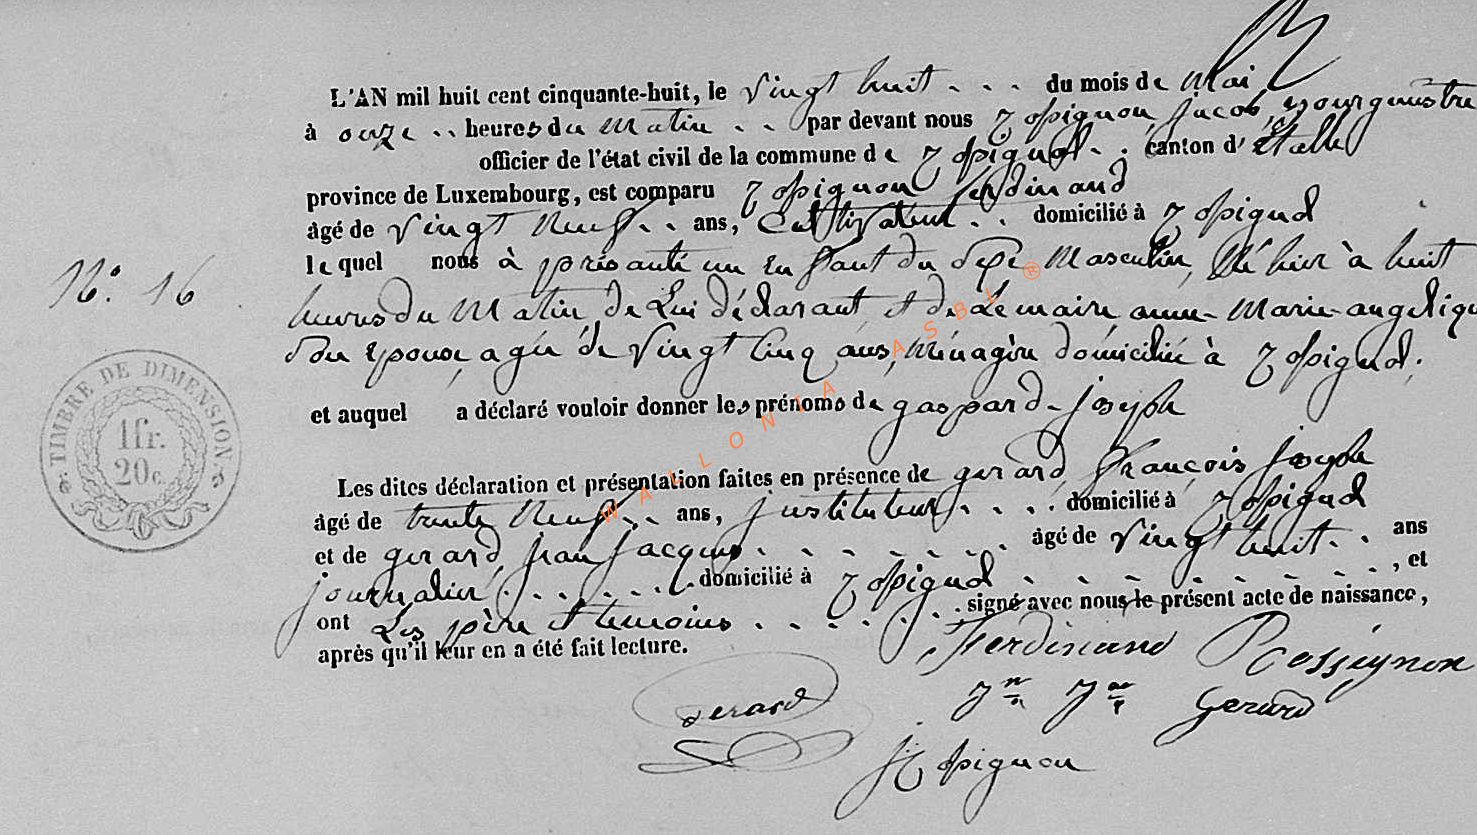 L'AN mil huit cent cinquante-huit, le vingt huit - - - du mois de Mai
à onze - - heures du Matin - - par devant nous Rossignon Jacob, Bourgmestre
officier de l'état civil de la commune de Rossignol - - canton d'Étalle
province de Luxembourg, est comparu Rossignon Ferdinand
âgé de vingt Neuf - - ans, Cultivateur - - domicilié à Rossignol
lequel nous à présenté un Enfant du Sexe Masculin, Né hier à huit
N° 16
heures du Matin de Lui déclarant, et de Lemaire anne-Marie-angelique
Son Epouse, agée de vingt Cinq ans, Ménagère domiciliée à Rossignol.
TIMBRE DE DIMENSION
1 fr. 20 c.
et auquel a déclaré vouloir donner les prénoms de gaspard-joseph
Les dites déclaration et présentation faites en présence de gerard, françois joseph
âgé de trente Neuf - - ans, justituteur - - - - domicilié à Rossignol
et de gerard, jean jacques - - - - - - - âgé de vingt huit - - ans
journalier - - - - - - domicilié à Rossignol - - - - - - - - , et
ont Les père et temoins - - - - - - signé avec nous le présent acte de naissance,
après qu'il leur en a été fait lecture.
Ferdinand Rossignon
Gerard
Jn Jq Gerard
J Rossignon
WALLONIA ASBL ®